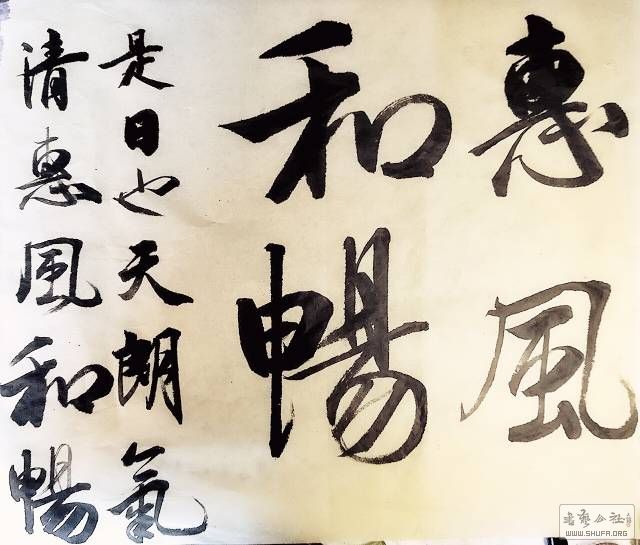 惠風
和暢
是日也天朗氣
清惠風和暢
書藝公社
WWW.SHUFA.ORG